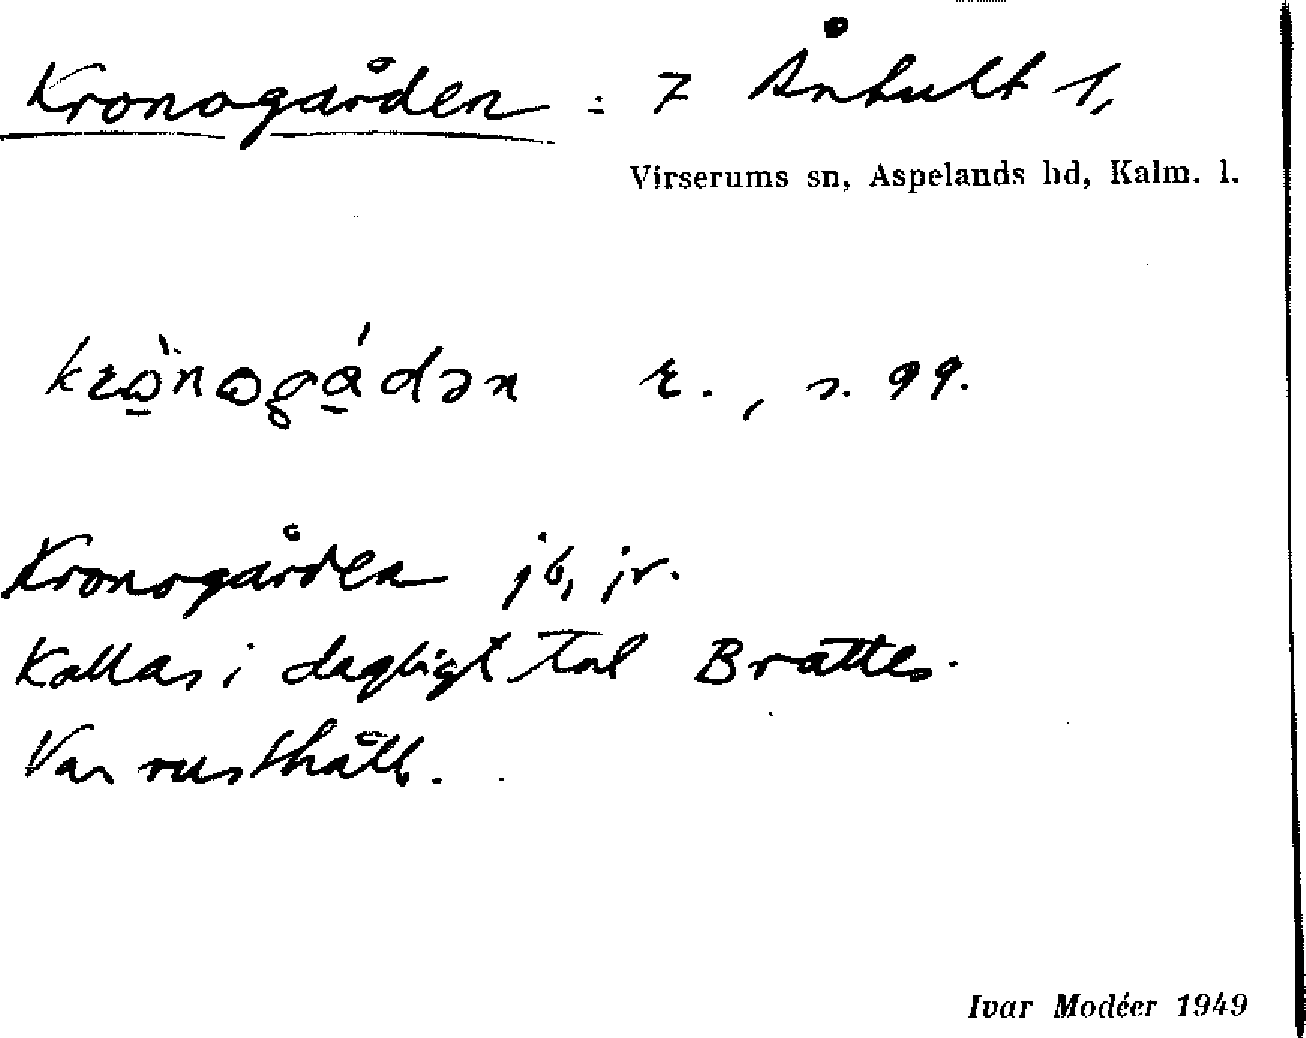 Kronogården : 7 Ånhult 1,
Virserums sn, Aspelands hd, Kalm. l.
r., s. 99.
Kronogården jb, jr.
Kallas i dagligt tal Brattes.
Var rusthåll.
Ivar Modéer 1949